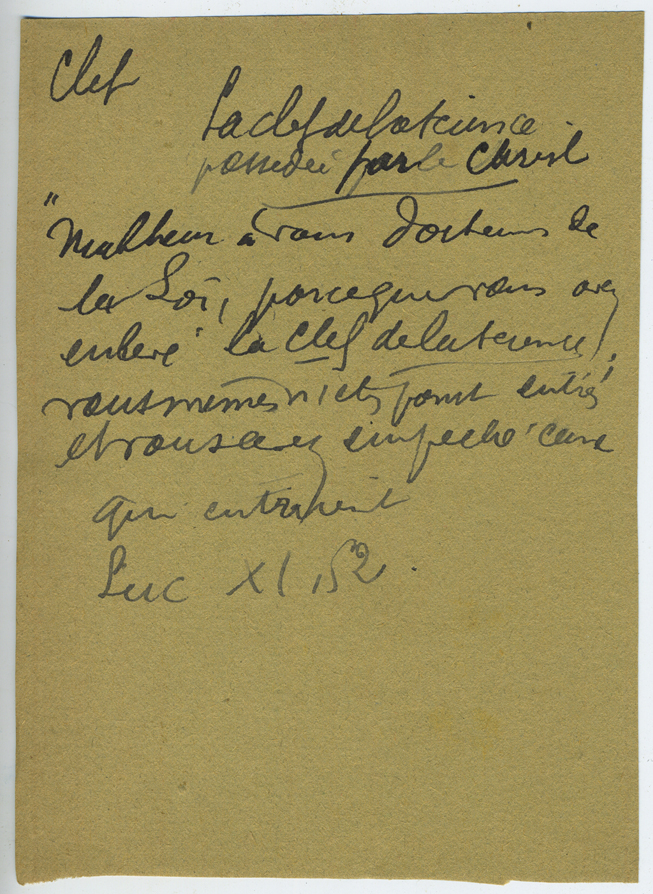 Clef
La clef de la science
possedée par le Christ
"Malheur à vous docteurs de
la Loi, parce que vous avez
enlevé la clef de la science,
vous mêmes n'etes point entrés
et vous avez empeché ceux
qui entraient
Luc XI, 52.